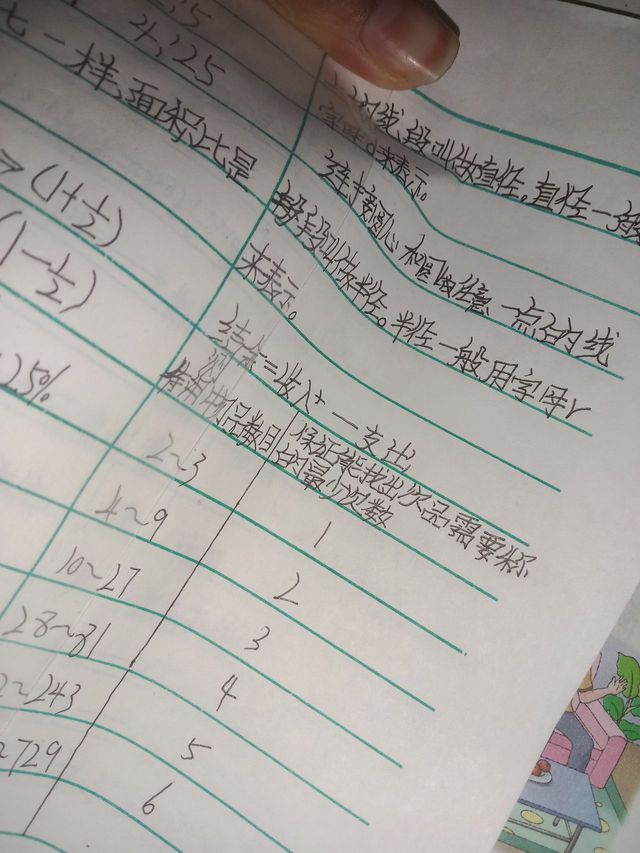 4:25
一样,面积比是
(1+1/2)
(1-1/2)
25%
线段叫做直径。直径一般
来表示。
连接圆心和圆上任意一点的线
段叫做半径。半径一般用字母r
来表示。
结余=收入 — 支出
物品数目
保证能找出次品需要称
的最少次数
2~3 1
4~9 2
10~27 3
28~81 4
2~243 5
729 6